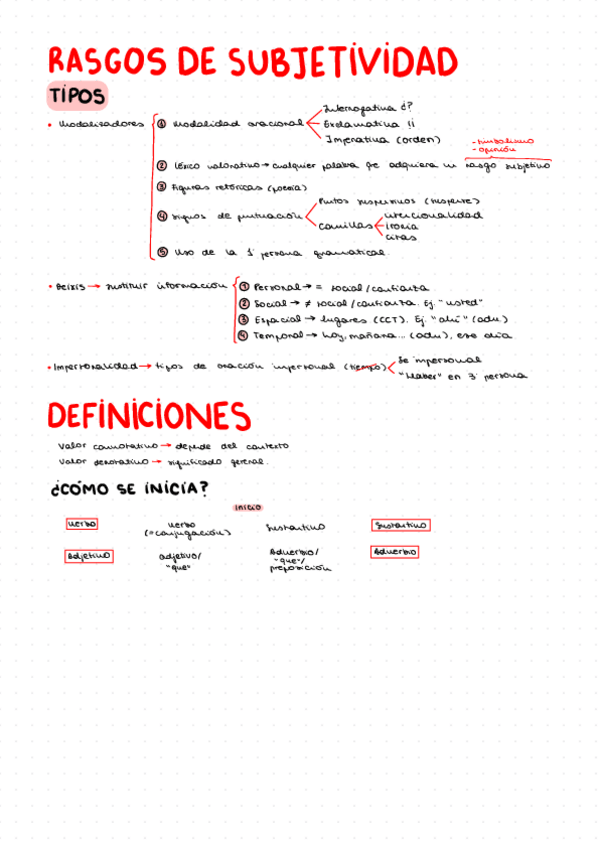 RASGOS DE SUBJETIVIDAD
TIPOS
• Modalizadores
① Modalidad oracional
Interrogativa ¿?
Exclamativa !!
Imperativa (orden)
- simbolismo
- opinión
② Léxico valorativo → cualquier palabra que adquiera un rasgo subjetivo
③ Figuras retóricas (poesía)
④ signos de puntuación
Puntos suspensivos (suspense)
Comillas
intencionalidad
ironía
citas
⑤ Uso de la 1ª persona gramatical.
• Deixis → sustituir información
① Personal → = social/confianza
② Social → ≠ social/confianza. Ej. "usted"
③ Espacial → lugares (CCT). Ej. "ahí" (adv.)
④ Temporal → hoy, mañana... (adv), ese día
• Impersonalidad → tipos de oración impersonal (tiempo)
Se impersonal
"Haber" en 3ª persona
DEFINICIONES
Valor connotativo → depende del contexto
Valor denotativo → significado general.
¿CÓMO SE INICIA?
inicio
Verbo
verbo
(= conjugación)
Sustantivo
Sustantivo
Adjetivo
adjetivo/
"que"
Adverbio/
"que"/
preposición
Adverbio